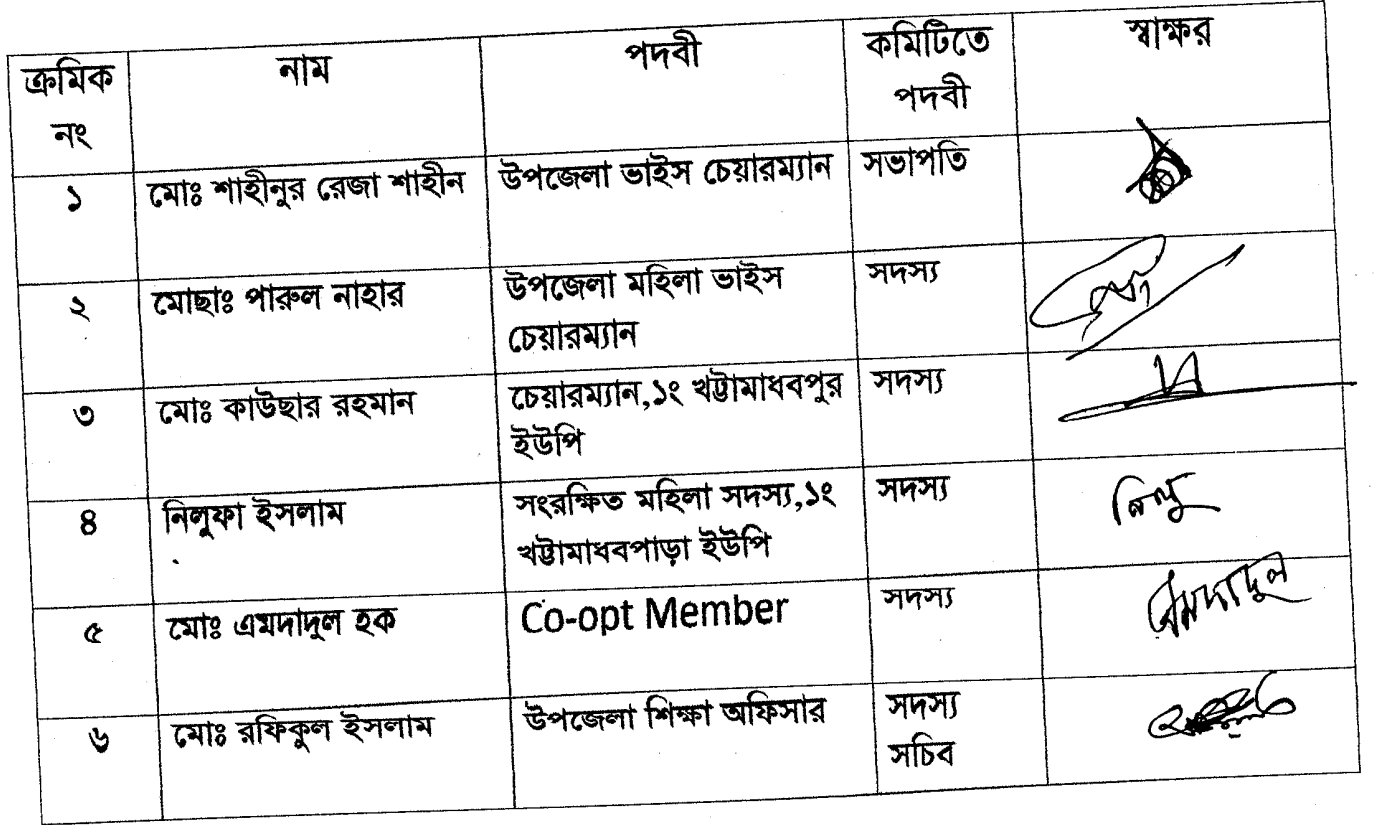 ক্রমিক নং | নাম | পদবী | কমিটিতে পদবী | স্বাক্ষর
১ | মোঃ শাহীনুর রেজা শাহীন | উপজেলা ভাইস চেয়ারম্যান | সভাপতি
২ | মোছাঃ পারুল নাহার | উপজেলা মহিলা ভাইস চেয়ারম্যান | সদস্য
৩ | মোঃ কাউছার রহমান | চেয়ারম্যান,১ং খট্টামাধবপুর ইউপি | সদস্য
৪ | নিলুফা ইসলাম | সংরক্ষিত মহিলা সদস্য,১ং খট্টামাধবপাড়া ইউপি | সদস্য | নিলু
৫ | মোঃ এমদাদুল হক | Co-opt Member | সদস্য | এমদাদুল
৬ | মোঃ রফিকুল ইসলাম | উপজেলা শিক্ষা অফিসার | সদস্য সচিব